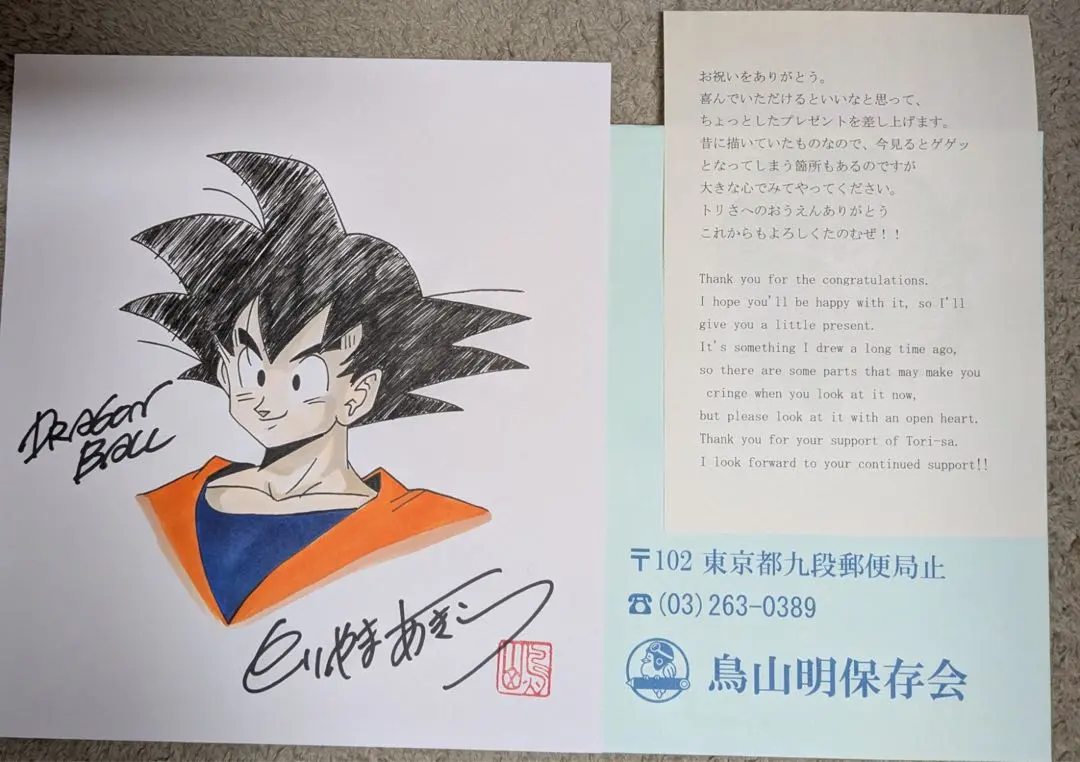 DRAGON
BALL
とりやまあきら
お祝いをありがとう。
喜んでいただけるといいなと思って、
ちょっとしたプレゼントを差し上げます。
昔に描いていたものなので、今見るとゲゲッ
となってしまう箇所もあるのですが
大きな心でみてやってください。
トリさへのおうえんありがとう
これからもよろしくたのむぜ！！
Thank you for the congratulations.
I hope you'll be happy with it, so I'll
give you a little present.
It's something I drew a long time ago,
so there are some parts that may make you
cringe when you look at it now,
but please look at it with an open heart.
Thank you for your support of Tori-sa.
I look forward to your continued support!!
〒102 東京都九段郵便局止
☎(03)263-0389
鳥山明保存会